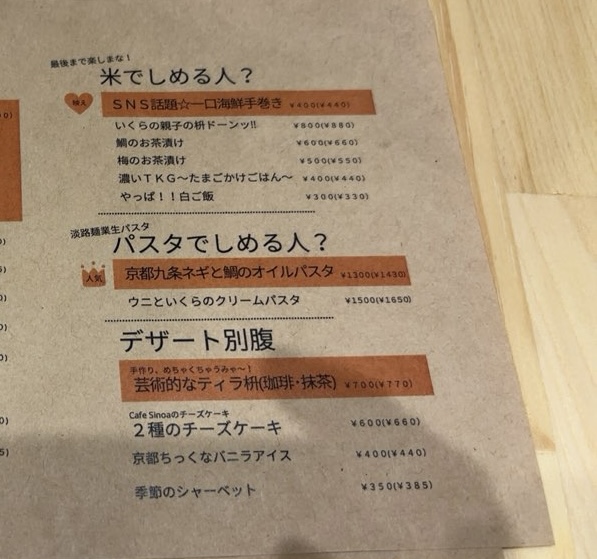 最後まで楽しまな!
米でしめる人?
SNS話題☆一口海鮮手巻き ¥400(¥440)
いくらの親子の枡ドーンッ!! ¥800(¥880)
鯛のお茶漬け ¥600(¥660)
梅のお茶漬け ¥500(¥550)
濃いTKG〜たまごかけごはん〜 ¥400(¥440)
やっぱ!!白ご飯 ¥300(¥330)
淡路麺業生パスタ
パスタでしめる人?
人気
京都九条ネギと鯛のオイルパスタ ¥1300(¥1430)
ウニといくらのクリームパスタ ¥1500(¥1650)
デザート別腹
手作り、めちゃくちゃうみゃ〜!
芸術的なティラ枡(珈琲・抹茶) ¥700(¥770)
Cafe Sinoaのチーズケーキ
2種のチーズケーキ ¥600(¥660)
京都ちっくなバニラアイス ¥400(¥440)
季節のシャーベット ¥350(¥385)